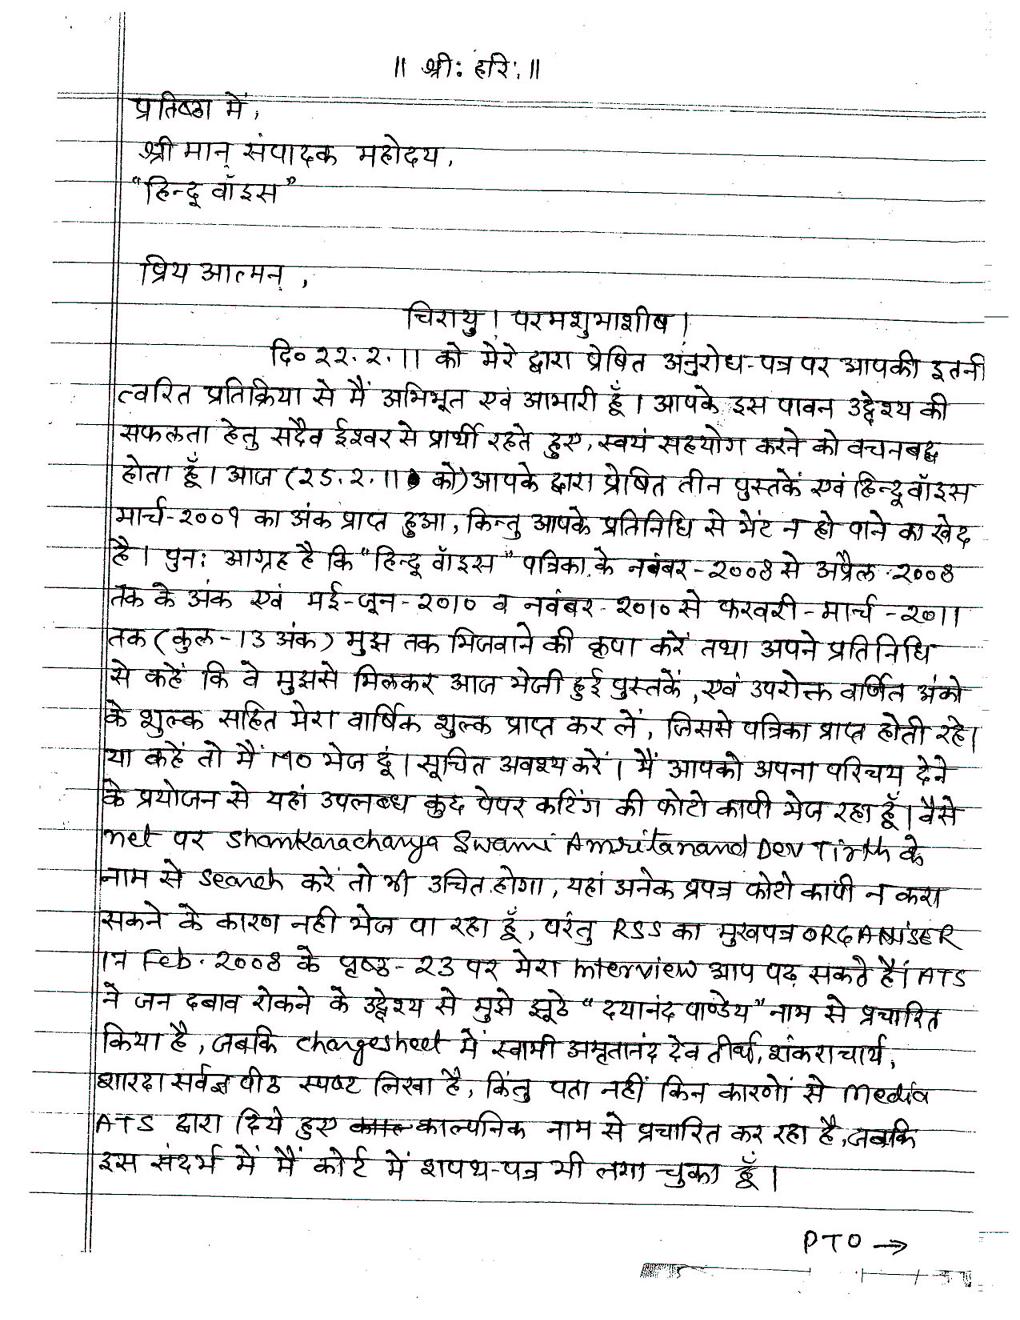 ॥ श्री: हरि: ॥
प्रतिष्ठा में,
श्री मान् संपादक महोदय,
"हिन्दू वॉइस"
प्रिय आत्मन्,
चिरायु। परमशुभाशीष।
दि० २२.२.११ को मेरे द्वारा प्रेषित अनुरोध-पत्र पर आपकी इतनी
त्वरित प्रतिक्रिया से मैं अभिभूत एवं आभारी हूँ। आपके इस पावन उद्देश्य की
सफलता हेतु सदैव ईश्वर से प्रार्थी रहते हुए, स्वयं सहयोग करने को वचनबद्ध
होता हूँ। आज (२५.२.११ को) आपके द्वारा प्रेषित तीन पुस्तकें एवं हिन्दू वॉइस
मार्च-२००९ का अंक प्राप्त हुआ, किन्तु आपके प्रतिनिधि से भेंट न हो पाने का खेद
है। पुन: आग्रह है कि "हिन्दू वॉइस" पत्रिका के नवंबर-२००८ से अप्रैल-२००८
तक के अंक एवं मई-जून-२०१० व नवंबर-२०१० से फरवरी-मार्च-२०११
तक (कुल-13 अंक) मुझ तक भिजवाने की कृपा करें तथा अपने प्रतिनिधि
से कहें कि वे मुझसे मिलकर आज भेजी हुई पुस्तकें, एवं उपरोक्त वर्णित अंको
के शुल्क सहित मेरा वार्षिक शुल्क प्राप्त कर लें, जिससे पत्रिका प्राप्त होती रहे।
या कहें तो मैं MO भेज दूं। सूचित अवश्य करें। मैं आपको अपना परिचय देने
के प्रयोजन से यहां उपलब्ध कुछ पेपर कटिंग की फोटो कापी भेज रहा हूँ। वैसे
net पर Shankaracharya Swami Amritanand Dev Tirth के
नाम से Search करें तो भी उचित होगा, यहां अनेक प्रपत्र फोटो कापी न करा
सकने के कारण नही भेज पा रहा हूँ, परंतु RSS का मुखपत्र ORGANISER
17 Feb. 2008 के पृष्ठ-23 पर मेरा Interview आप पढ़ सकते हैं। ATS
ने जन दबाव रोकने के उद्देश्य से मुझे झूठे "दयानंद पाण्डेय" नाम से प्रचारित
किया है, जबकि chargesheet में स्वामी अमृतानंद देव तीर्थ, शंकराचार्य,
शारदा सर्वज्ञ पीठ स्पष्ट लिखा है, किंतु पता नहीं किन कारणों से Media
ATS द्वारा दिये हुए काल्पनिक नाम से प्रचारित कर रहा है, जबकि
इस संदर्भ में मैं कोर्ट में शपथ-पत्र भी लगा चुका हूँ।
PTO →